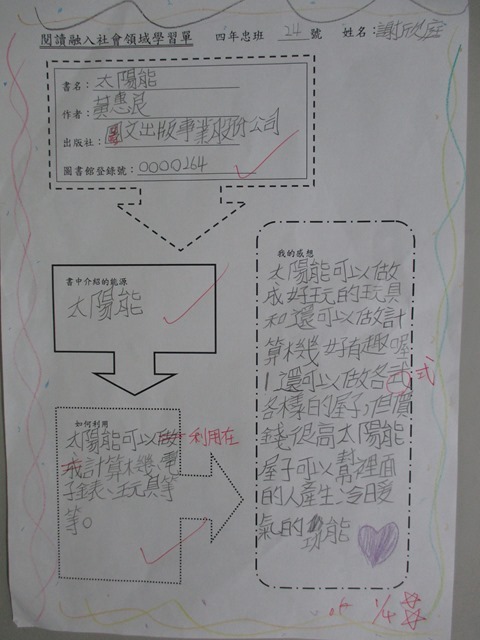 閱讀融入社會領域學習單 四年忠班 24 號 姓名：謝欣庭
書名：太陽能
作者：黃惠良
出版社：圖文出版事業股份公司
圖書館登錄號：0000264
書中介紹的能源
太陽能
如何利用
太陽能可以做 利用在
成計算機、電
子錶、玩具等
等。
我的感想
太陽能可以做
成好玩的玩具
和還可以做計
算機好有趣喔
!還可以做各式 式
各樣的屋子,但價
錢很高太陽能
屋子可以幫裡面
的人產生冷暖
氣的功能
ok 1/4